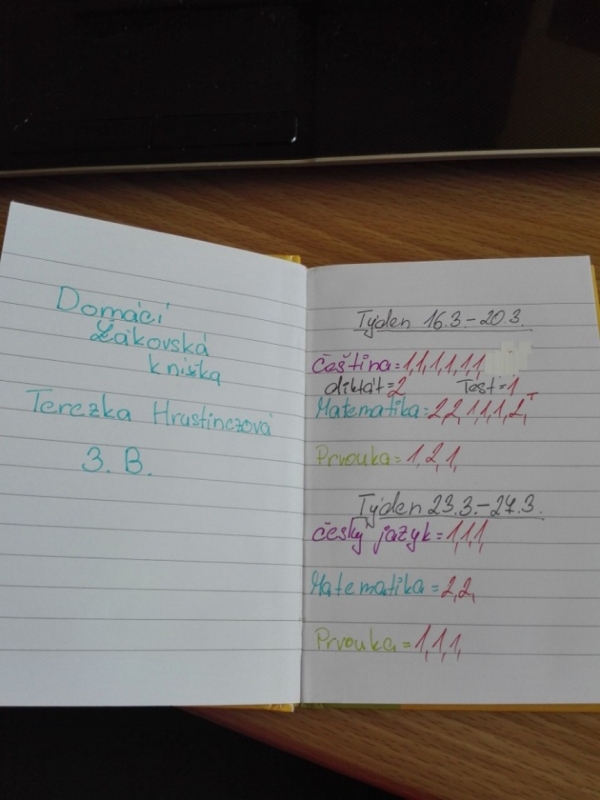 Domácí
Žákovská
knížka
Terezka Hrustinczová
3. B.
Týden 16.3-20.3.
čeština=1,1,1,1,1,1
diktát=2 Test=1
Matematika=2,2,1,1,1,2,T
Prvouka=1,2,1,
Týden 23.3.-27.3.
český jazyk=1,1,1,
Matematika=2,2,
Prvouka=1,1,1,